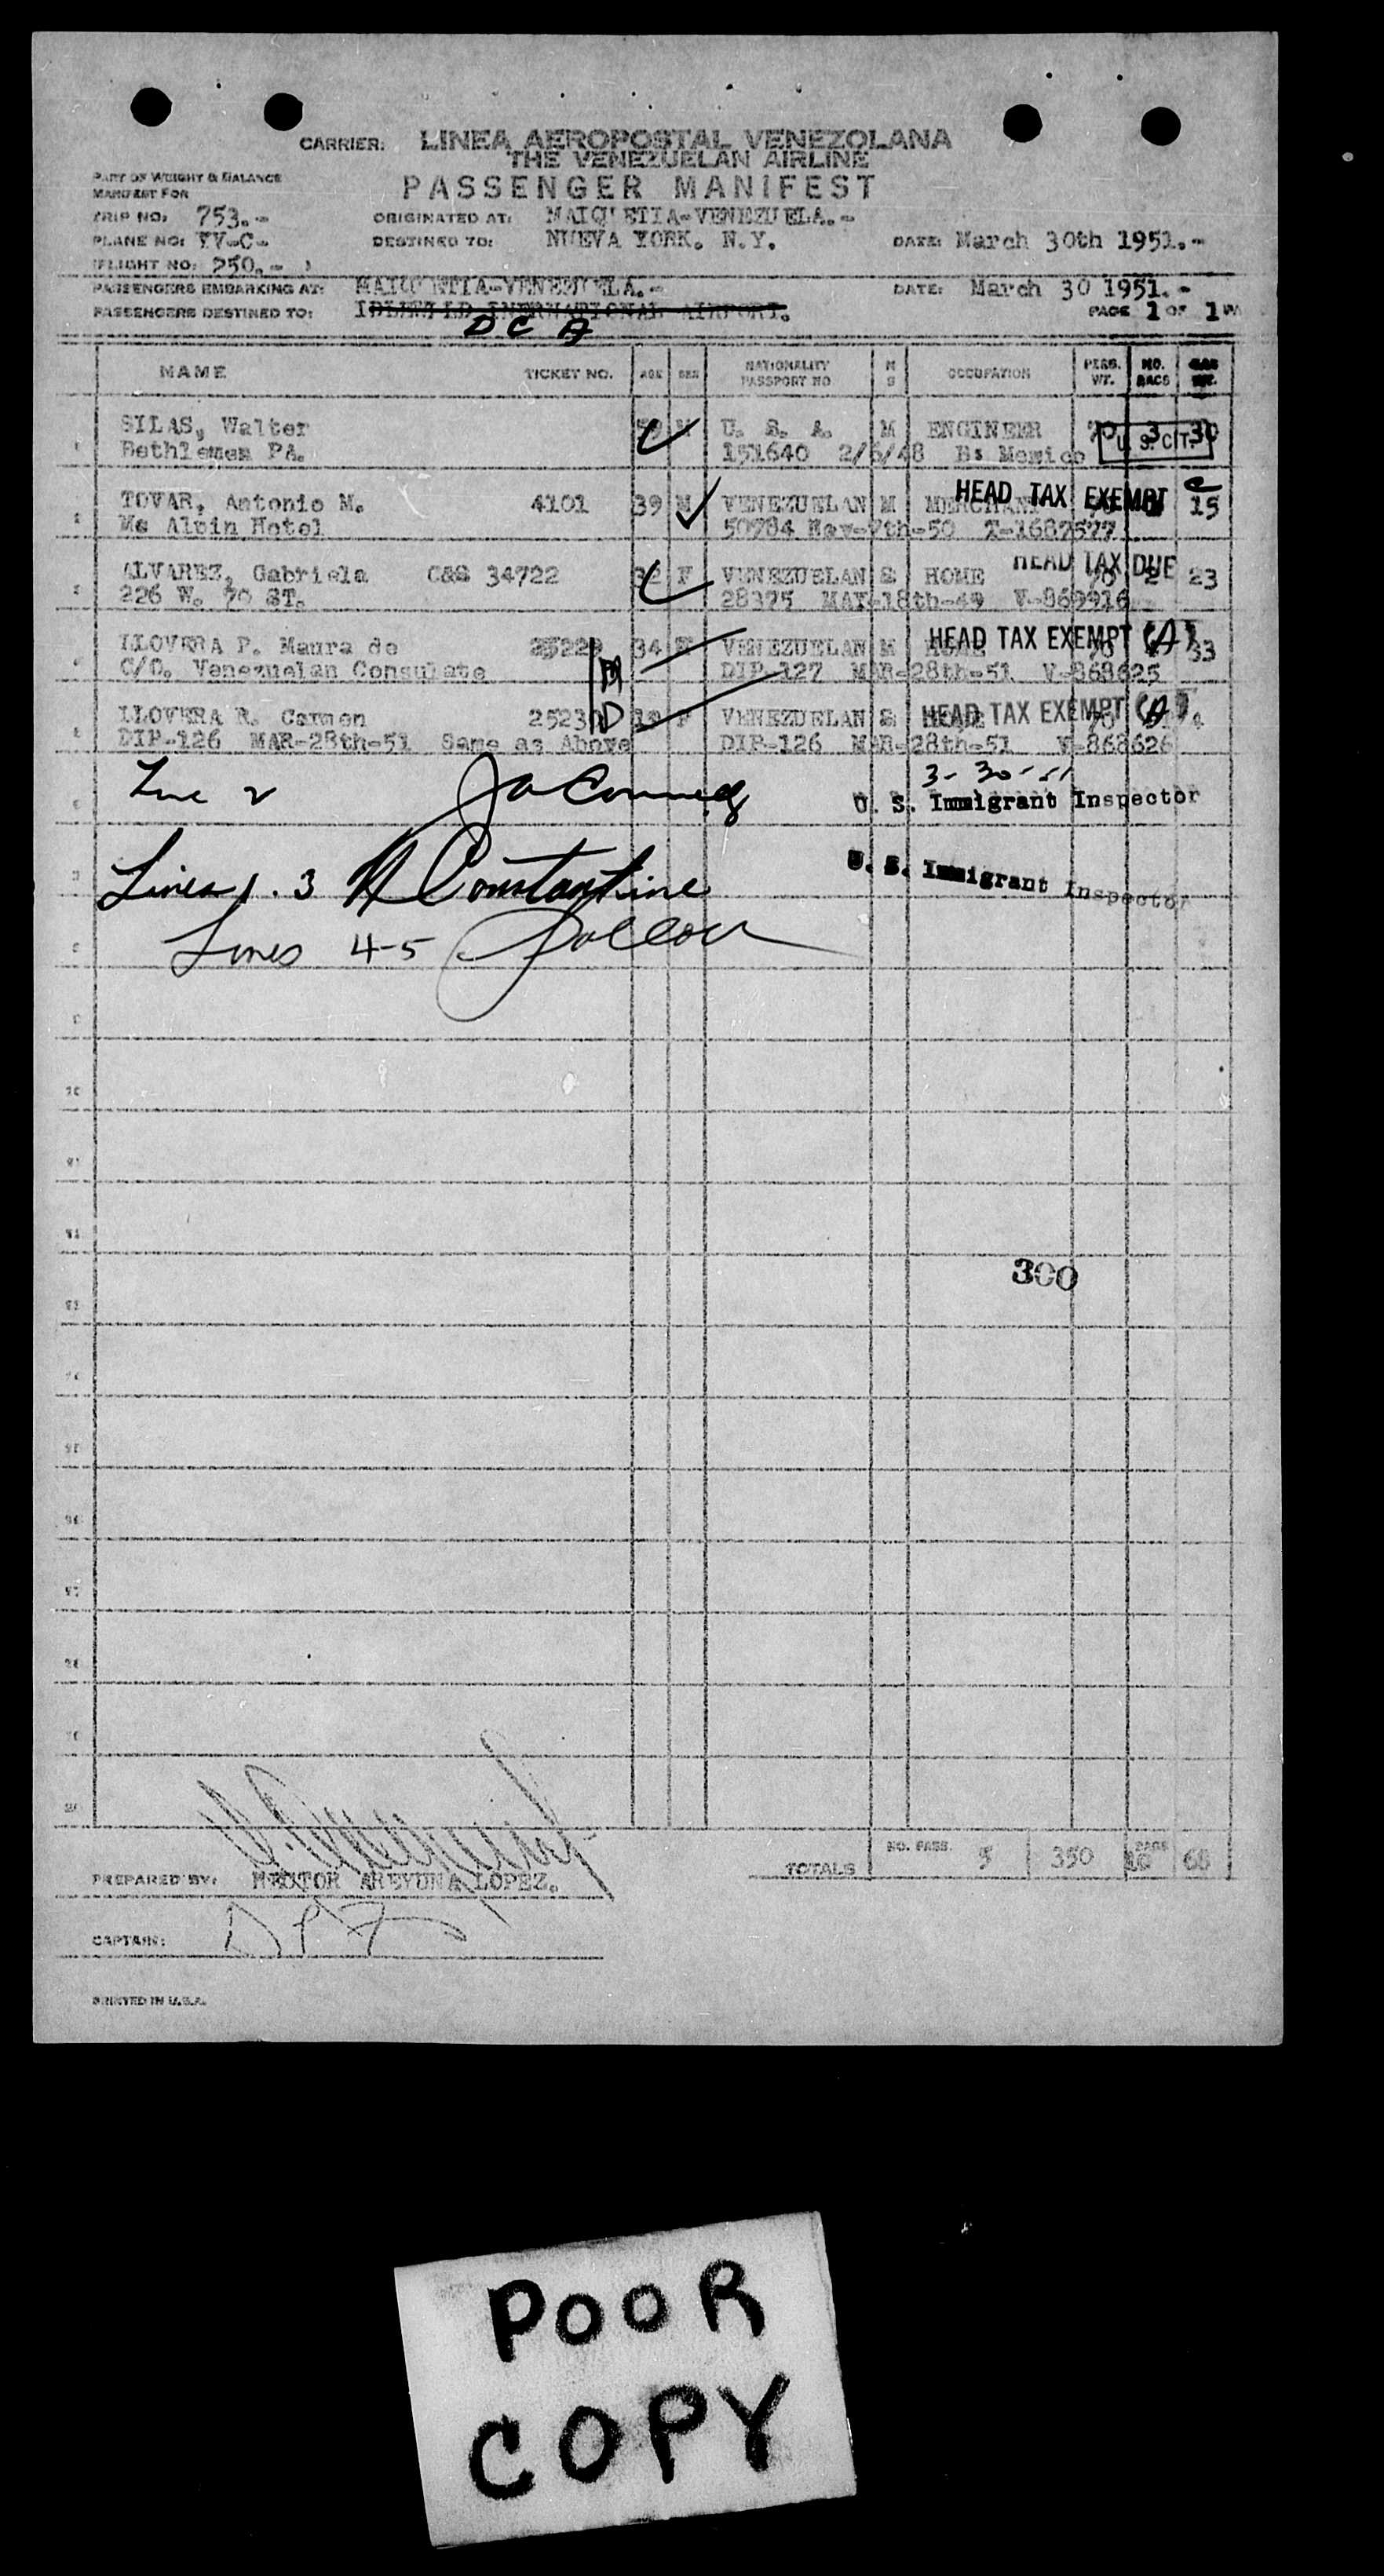 CARRIER: LINEA AEROPOSTAL VENEZOLANA
THE VENEZUELAN AIRLINE
PART OF WEIGHT & BALANCE
MANIFEST FOR
PASSENGER MANIFEST
TRIP NO: 753.- ORIGINATED AT: MAIQUETIA-VENEZUELA.-
PLANE NO: YV-C- DESTINED TO: NUEVA YORK. N.Y. DATE: March 30th 1951.-
FLIGHT NO: 250.-
PASSENGERS EMBARKING AT: MAIQUETIA-VENEZUELA.- DATE: March 30 1951.-
PASSENGERS DESTINED TO: IDLEWILD INERNATIONAL AIRPORT. PAGE 1 OF 1
D C A
NAME TICKET NO. AGE SEX NATIONALITY PASSPORT NO M S OCCUPATION PERS. WT. NO. BAGS BAG WT.
SILAS, Walter M U. S. A. M ENGINEER 70 3 30
U. S. CIT.
Bethlemem PA. 151640 2/6/48 B: Mexico
TOVAR, Antonio M. 4101 39 M VENEZUELAN M MERCHANT HEAD TAX EXEMPT C 15
Mc Alpin Hotel 50784 Nov-7th-50 T-1687577
ALVAREZ, Gabriela C&S 34722 32 F VENEZUELAN S HOME HEAD TAX DUE 70 2 23
226 W. 70 ST. 28375 MAY-18th-49 V-869916
LLOVERA P. Maura de 25229 34 VENEZUELAN M HEAD TAX EXEMPT (A) 33
C/O. Venezuelan Consulate DIP-127 MAR-28th-51 V-868625
LLOVERA R. Carmen 2523 F VENEZUELAN S HEAD TAX EXEMPT (A)
DIP-126 MAR-28th-51 Same as Above DIP-126 MAR-28th-51 V-868626
Line 2 3-30-51
U. S. Immigrant Inspector
Lines 1. 3 Constantine U. S. Immigrant Inspector
Lines 4-5
300
TOTALS NO. PASS. 5 350 68
PREPARED BY: HECTOR AREYUNA LOPEZ.
CAPTAIN:
PRINTED IN U.S.A.
POOR
COPY